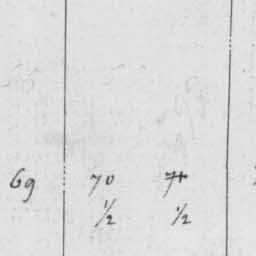 69 70 71
½ ½